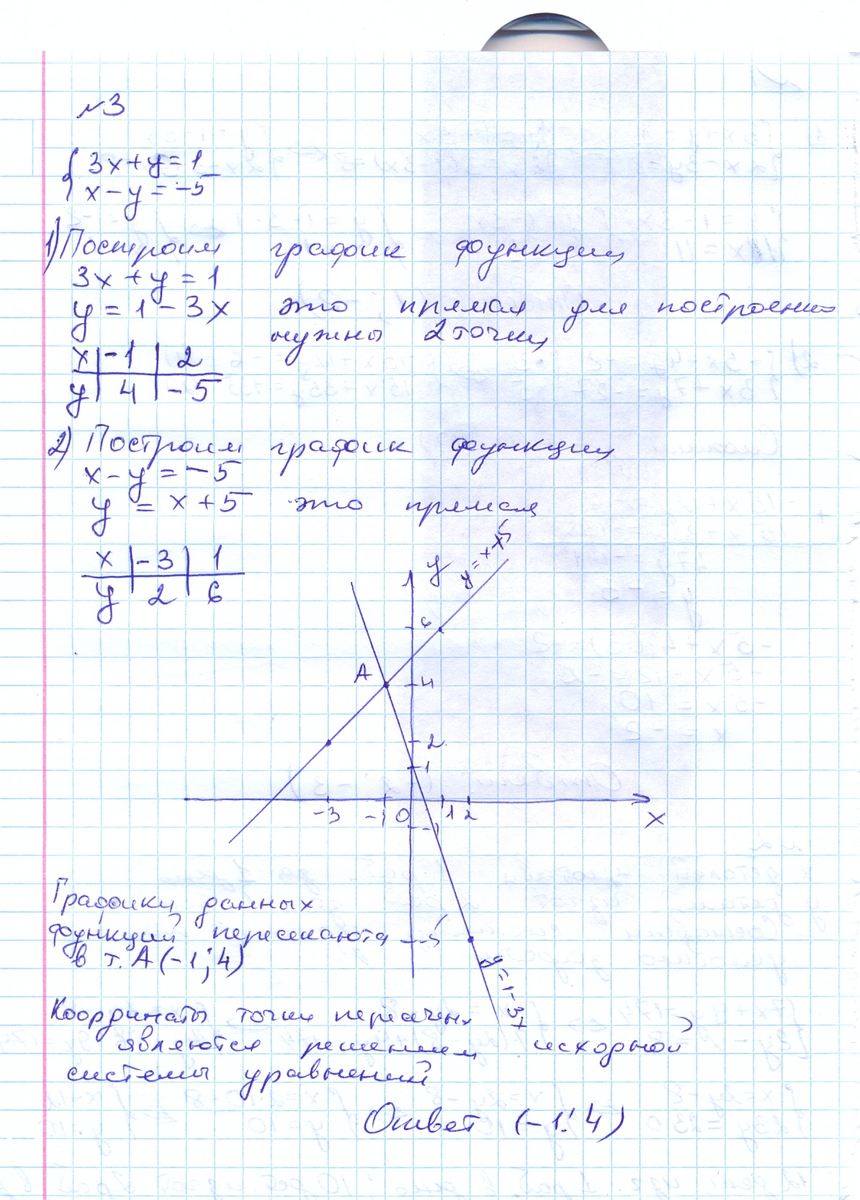 №3
{ 3x+y=1
x-y=-5
1) Построим график функции
3x+y=1
y=1-3x это прямая для построения
нужны 2 точки
x | -1 | 2
y | 4 | -5
2) Построим график функции
x-y=-5
y=x+5 это прямая
x | -3 | 1
y | 2 | 6
y
6
A
4
2
1
-3 -1 0 1 2 x
-1
-5
y=1-3x
Графики данных
функций пересекаются
в т. A(-1; 4)
Координаты точки пересечен
являются решением исходной
системы уравнений
Ответ (-1; 4)